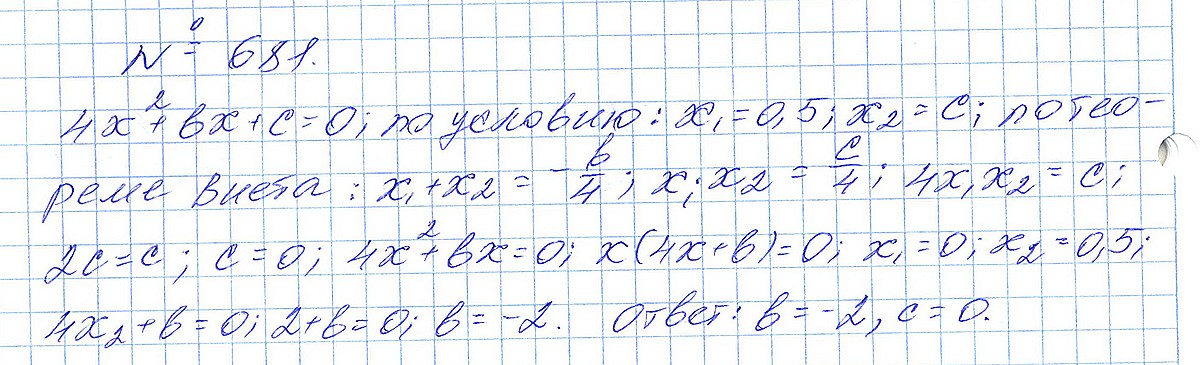 № 681.
4x²+bx+c=0; по условию: x₁=0,5; x₂=c; по тео-
реме Виета: x₁+x₂ = -b/4; x₁·x₂ = c/4; 4x₁x₂=c;
2c=c; c=0; 4x²+bx=0; x(4x+b)=0; x₁=0; x₂=0,5;
4x₂+b=0; 2+b=0; b=-2. Ответ: b=-2, c=0.